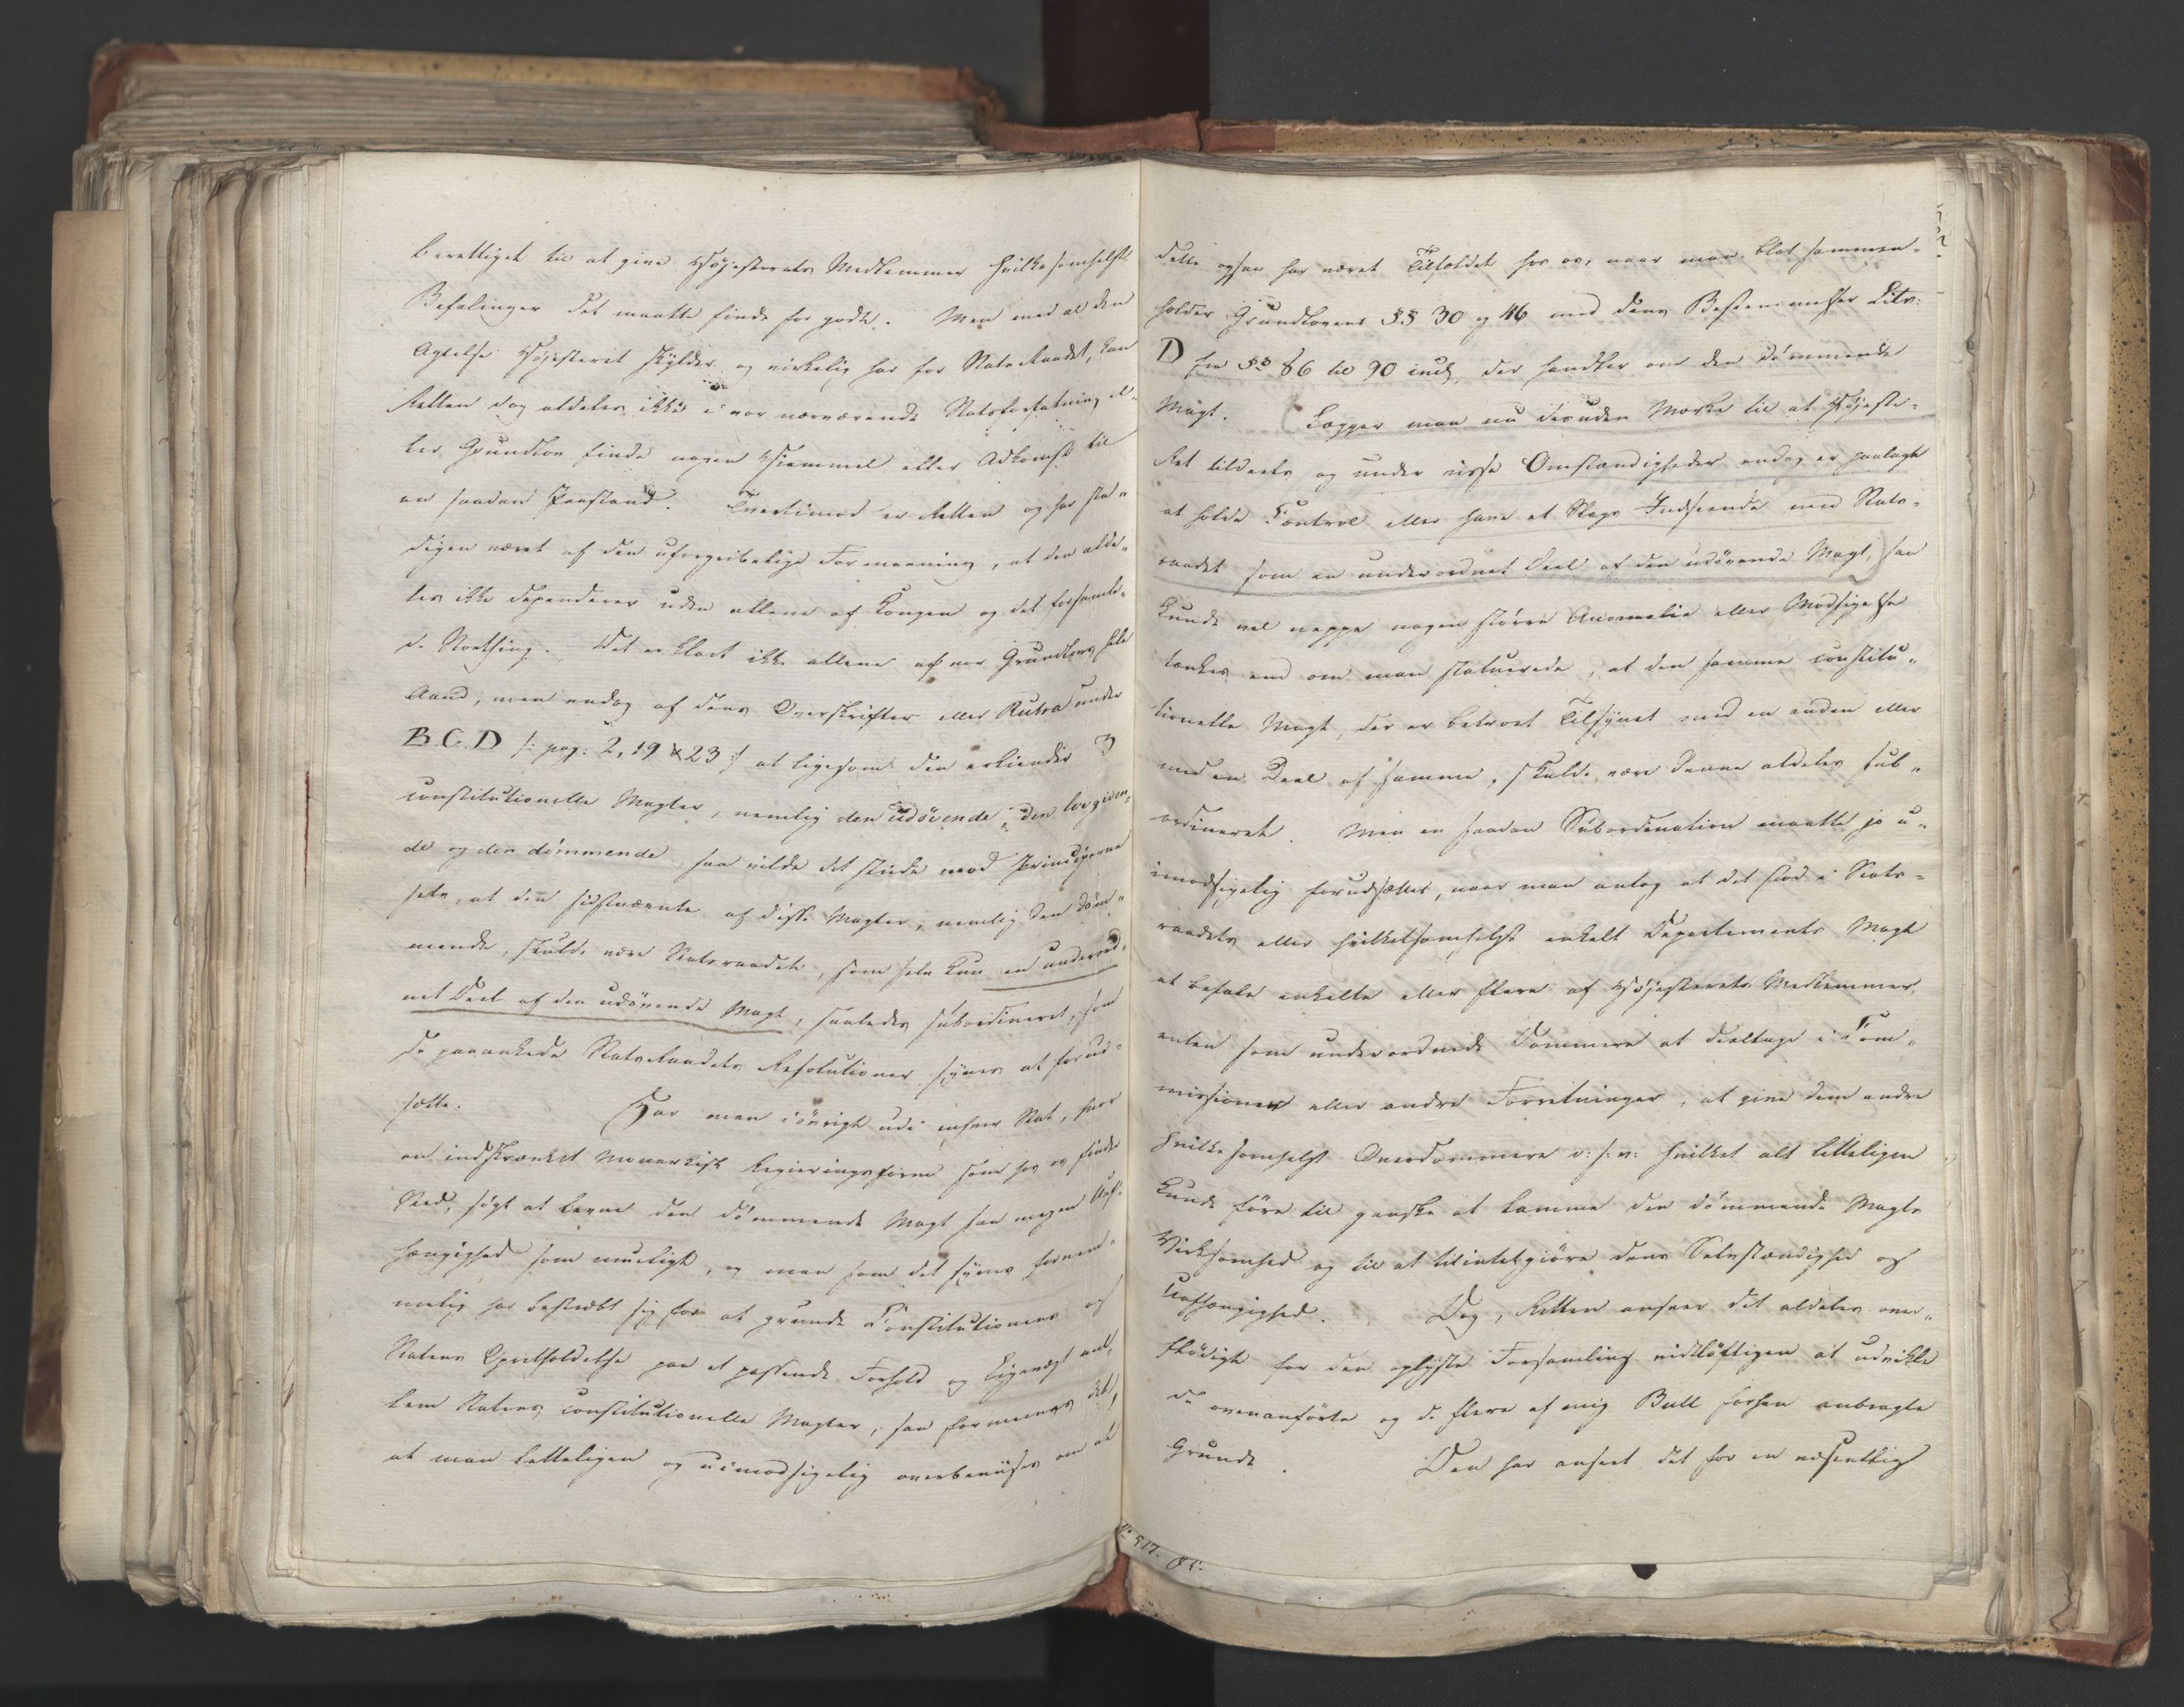 berettiget til at give Højesterets Medlemmer hvilkesomhelst
Befalinger det maatte finde for godt. Men med al den
Agtelse Højesteret skylder og virkelig har for Statsraadet, kan
Retten dog aldeles ikke i vor nærværende Statsforfatning el-
ler Grundlov finde nogen Hiemmel eller Adkomst til
en saadan Paastand. Tvertimod er Retten og har sta-
digen været af den uforgribelige Formeening, at den alde-
les ikke dependerer uden allene af Kongen og det forsamle-
de Storthing. Det er klart ikke allene af vor Grundlovs hele
Aand, men endog af dens Overskrifter eller Rubra under
B. C. D /: pag: 2, 19 & 23 :/ at ligesom den erkiender 3
constitutionelle Magter, nemlig den udövende, den lovgiven-
de og den dömmende, saa vilde det stride mod Principerne
selv, at den sidstnævnte af disse Magter, nemlig den döm-
mende, skulde være Statsraadet, som selv kun en underord-
net Deel af den udövende Magt, saaledes subordineret, som
de paaankede Statsraadets Resolutioner synes at forud-
sætte. Har man iövrigt udi enhver Stat, hvor
en indskrænket Monarkisk Regieringsform som hos os finder
Sted, søgt at levne den dömmende Magt saa megen Uaf-
hængighed som mueligt, og man som det synes fornem-
melig har bestræbt sig for at grunde Constitutionens og
Statens Opretholdelse paa et passende Forhold og Ligevægt mel-
lem Statens constitutionelle Magter, saa formenes det,
at man letteligen og uimodsigelig overbeviises om at
dette ogsaa har været Tilfældet hos os, naar man blot sammen-
holder Grundlovens §§ 30 og 46 med dens Bestemmelser Litr:
D fra §§ 86 til 90 incl, der handler om den dömmende
Magt. Lægger man nu desuden Mærke til at Højeste-
Ret tildeels og under visse Omstændigheder endog er paalagt
at holde Control eller have et Slags Indseende med Stats-
raadet som en underordnet Deel af den udövende Magt, saa
kunde vel neppe nogen större Anomalie eller Modsigelse
tænkes end om man statuerede, at den samme constitu-
tionelle Magt, der er betroet Tilsynet med en anden eller
med en Deel af samme, skulde være denne aldeles sub-
ordineret. Men en saadan Subordination maatte jo u-
imodsigelig forudsættes, naar man antog at det stod i Stats-
raadets eller hvilketsomhelst enkelt Departements Magt
at befale enkelte eller flere af Højesterets Medlemmer,
enten som underordnede Dommere at deeltage i Com-
missioner eller andre Forretninger, at give dem andre
hvilkesomhelst Overdommere o: s: v: hvilket alt letteligen
kunde føre til ganske at lamme den dömmende Magts
Virksomhed og til at tilintetgiöre dens Selvstændighed og
Uafhængighed. Dog, Retten anseer det aldeles over-
flödigt for den oplyste Forsamling vidtlöftigen at udvikle
de ovenanförte og de flere af mig Bull forhen anbragte
Grunde. Den har anseet det for en væsentlig